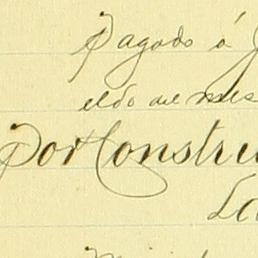 Pagado á
eldo del mes
Por Constru
La